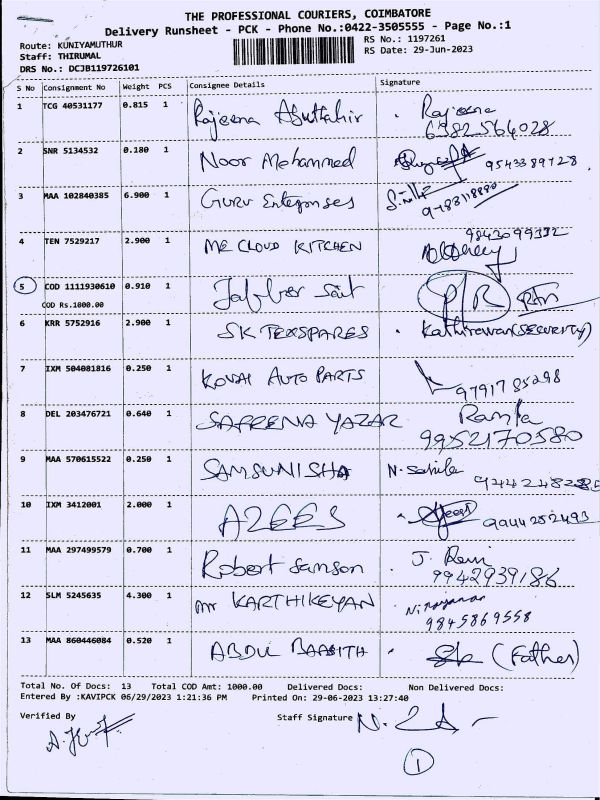 THE PROFESSIONAL COURIERS, COIMBATORE
Delivery Runsheet - PCK - Phone No.:0422-3505555 - Page No.:1
Route: KUNIYAMUTHUR
RS No.: 1197261
Staff: THIRUMAL
RS Date: 29-Jun-2023
DRS No.: DCJB119726101
S No Consignment No Weight PCS Consignee Details Signature
1 TCG 40531177 0.815 1 Rajeena Abuthahir Rajeena
6382564028
2 SNR 5134532 0.180 1 Noor Mohammed 9543389728
3 MAA 102840385 6.900 1 Guru Enterprises
9783118880
4 TEN 7529217 2.900 1 ME CLOUD KITCHEN 9843099332
5 COD 1111930610 0.910 1 Jabber Sait P/R Rtn
COD Rs.1000.00
6 KRR 5752916 2.900 1 SK TEXSPARES Kathiravan (SECURITY)
7 IXM 504081816 0.250 1 KOVAI AUTO PARTS 9791785298
8 DEL 203476721 0.640 1 SAFREENA YAZAR Ramla
9952170580
9 MAA 570615522 0.250 1 SAMSUNISHA N. 
10 IXM 3412001 2.000 1 AZEES 9944252493
11 MAA 297499579 0.700 1 Robert Samson J. Remi
9942939186
12 SLM 5245635 4.300 1 Mr KARTHIKEYAN
9845869558
13 MAA 860446084 0.520 1 ABDUL BAASITH (Father)
Total No. Of Docs: 13 Total COD Amt: 1000.00 Delivered Docs: Non Delivered Docs:
Entered By :KAVIPCK 06/29/2023 1:21:36 PM Printed On: 29-06-2023 13:27:40
Verified By Staff Signature
1